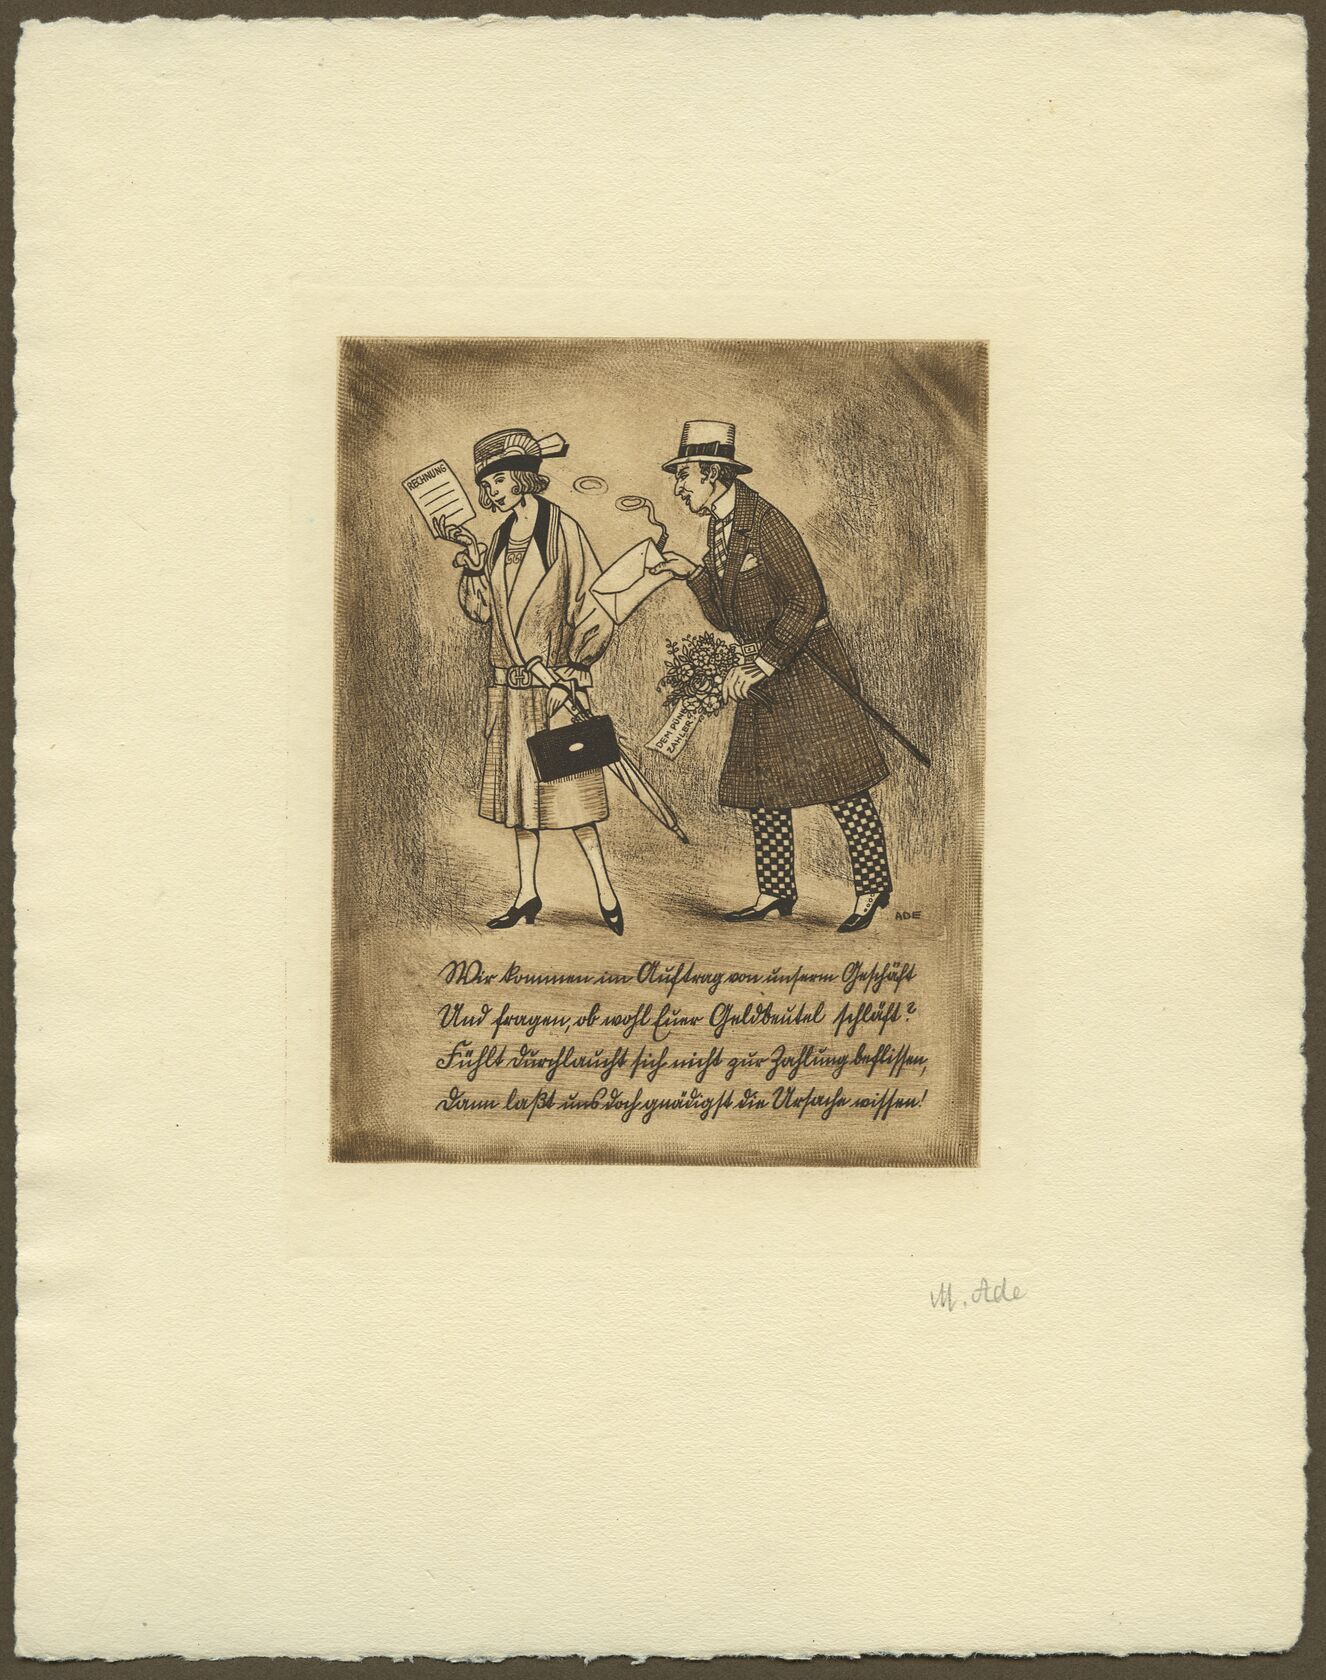 RECHNUNG
DEM PÜNK
ZAHLER
ADE
Wir kommen im Auftrag von unserm Geschäft
Und fragen, ob wohl Euer Geldbeutel schläft?
Fühlt Durchlaucht sich nicht zur Zahlung beflissen,
Dann laßt uns doch gnädigst die Ursache wissen!
M. Ade